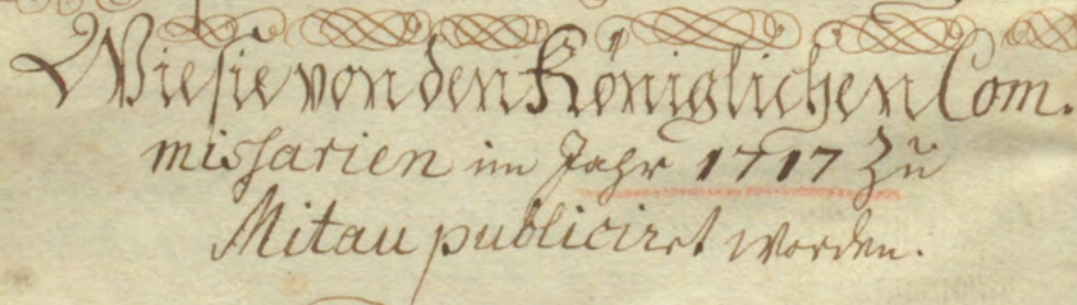 Wie sie von den Königlichen Com.
missarien im Jahr 1717 Zu
Mitau publiciret worden.